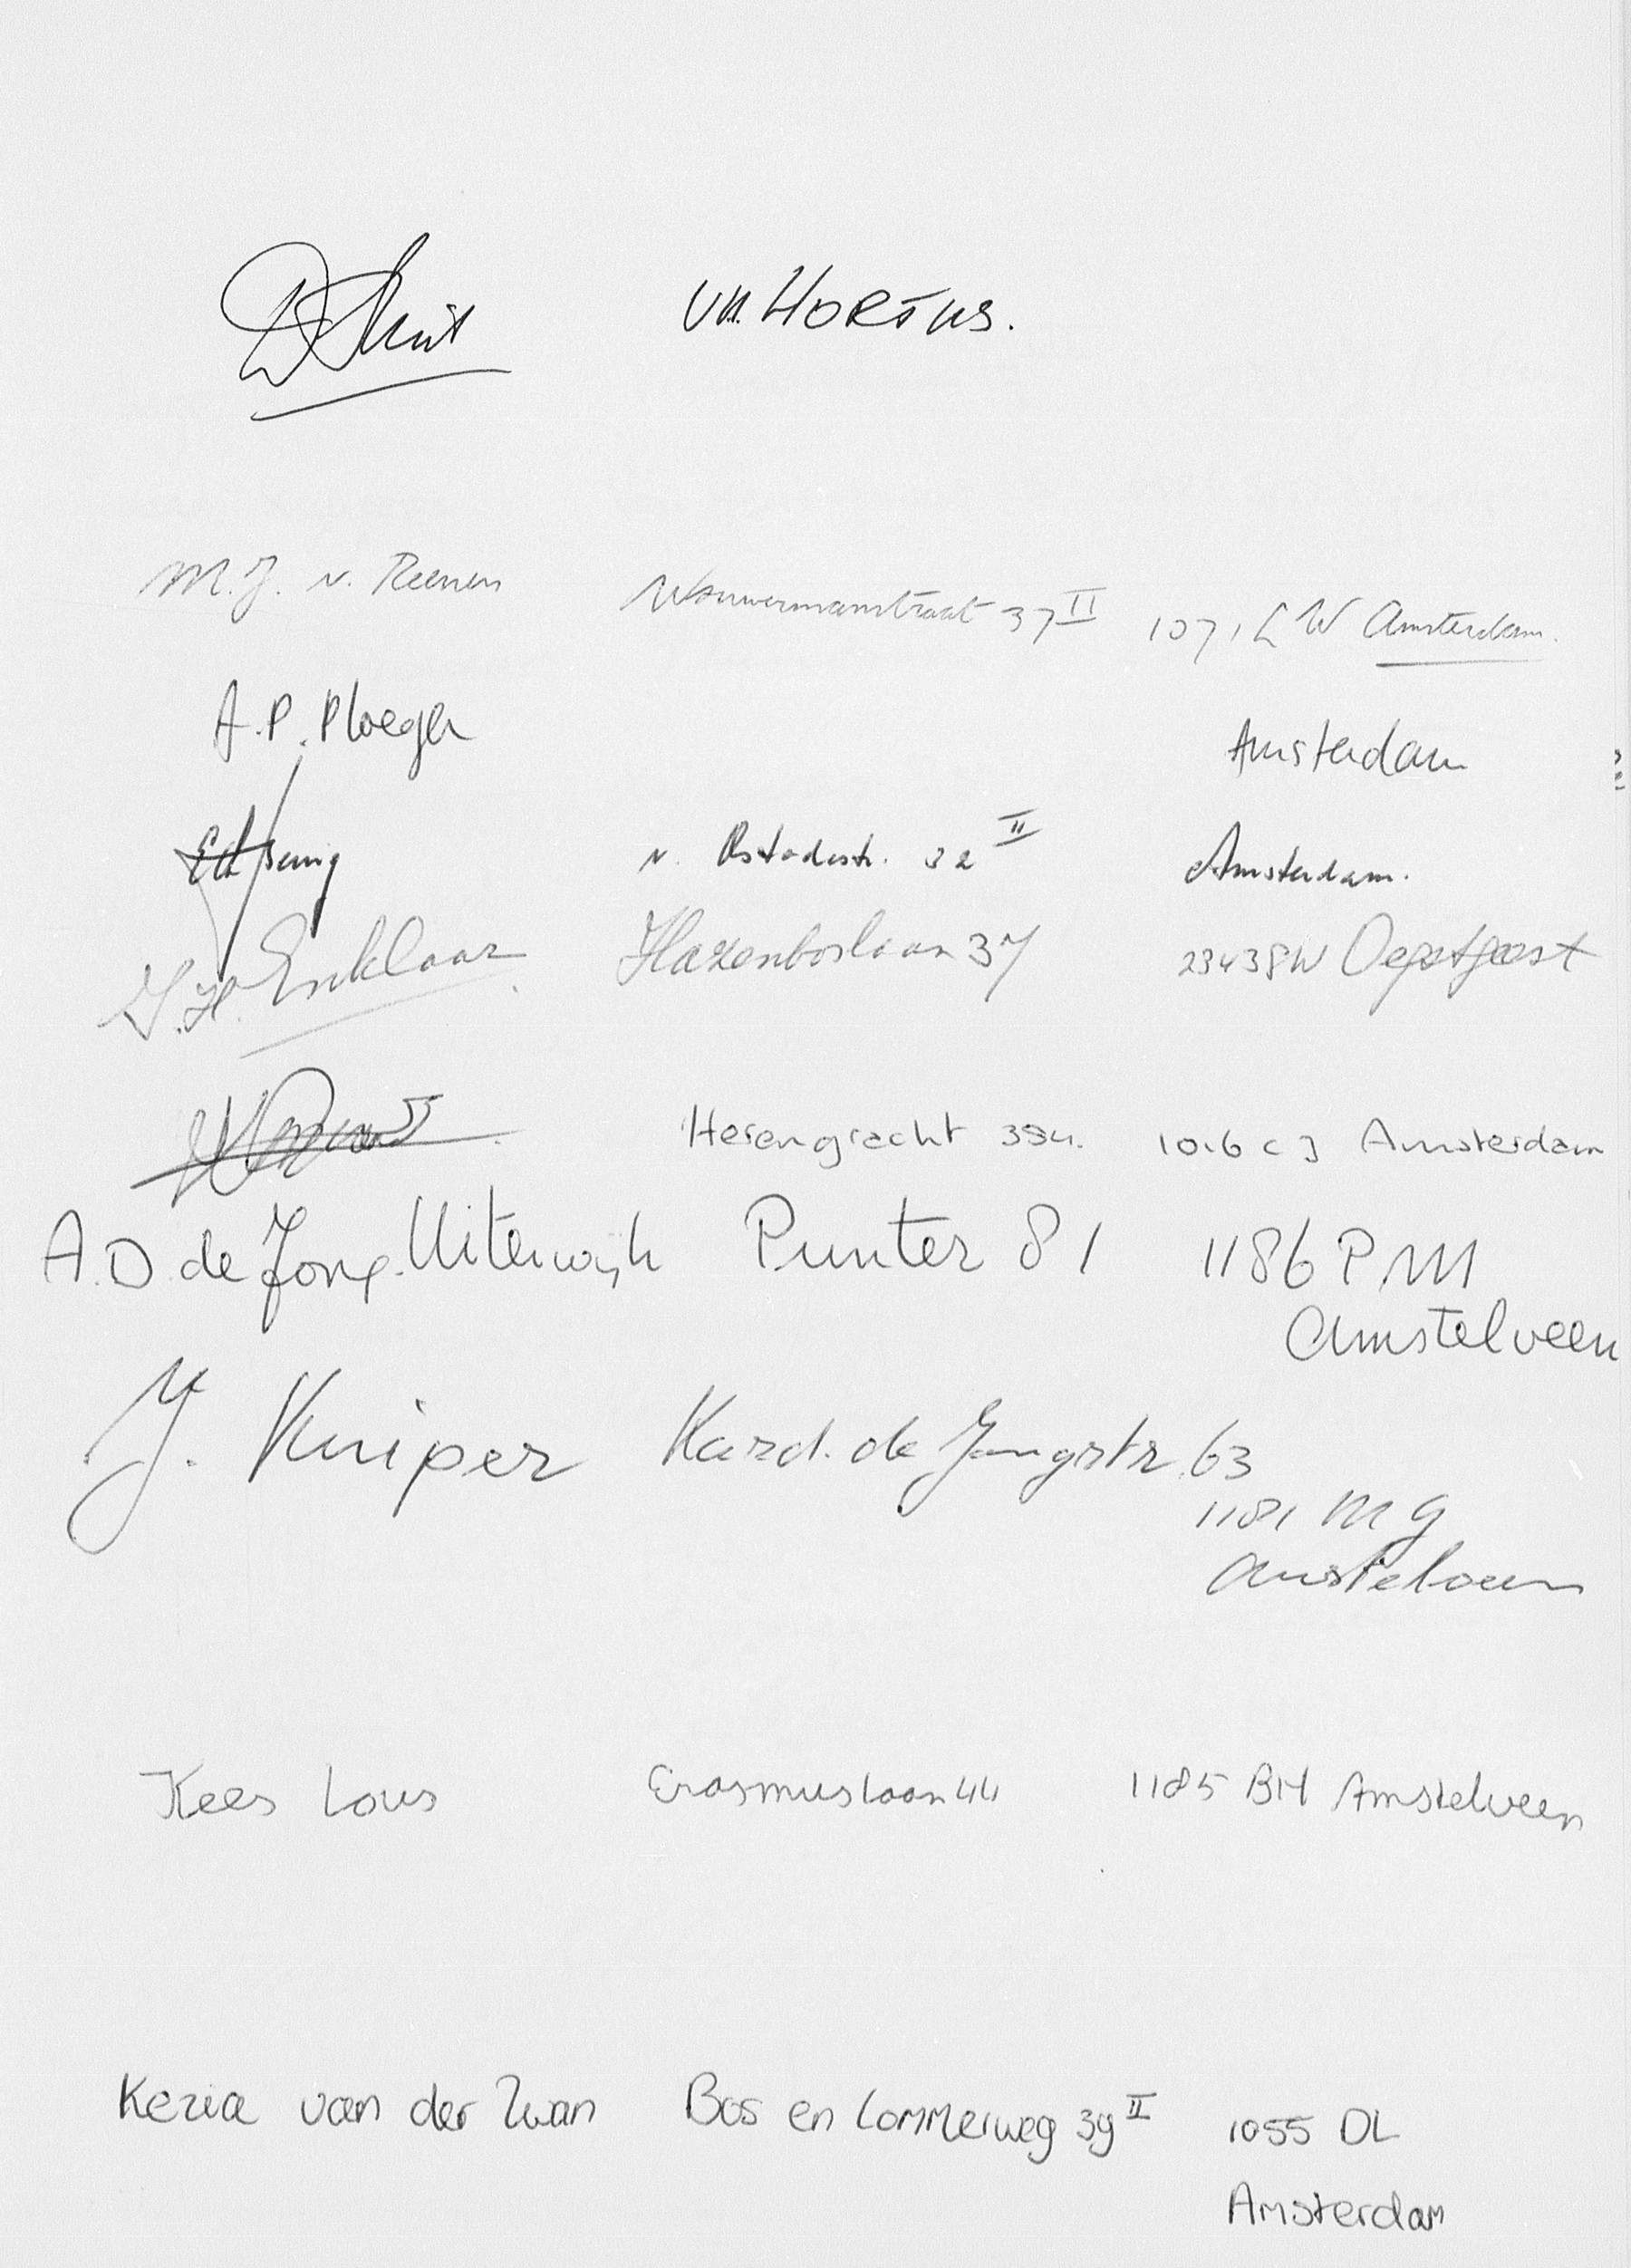 HORTUS.
M. J. v. Reenen Wouwermanstraat 37 II 1071 LW Amsterdam.
A. P. Ploeger Amsterdam
v. Ostadestr. 32 II Amsterdam.
J. H. Enklaar Hazenboslaan 37 2343 SW Oegstgeest
Herengracht 394. 1016 CJ Amsterdam
A. D. de Jong. Uiterwijk Punter 81 1186 PM
Amstelveen
J. Kuiper Kard. de Jongstr. 63
1181 MG
Amstelveen
Kees Lous Erasmuslaan 44 1185 BH Amstelveen
Kezia van der Zwan Bos en Lommerweg 39 II 1055 DL
Amsterdam